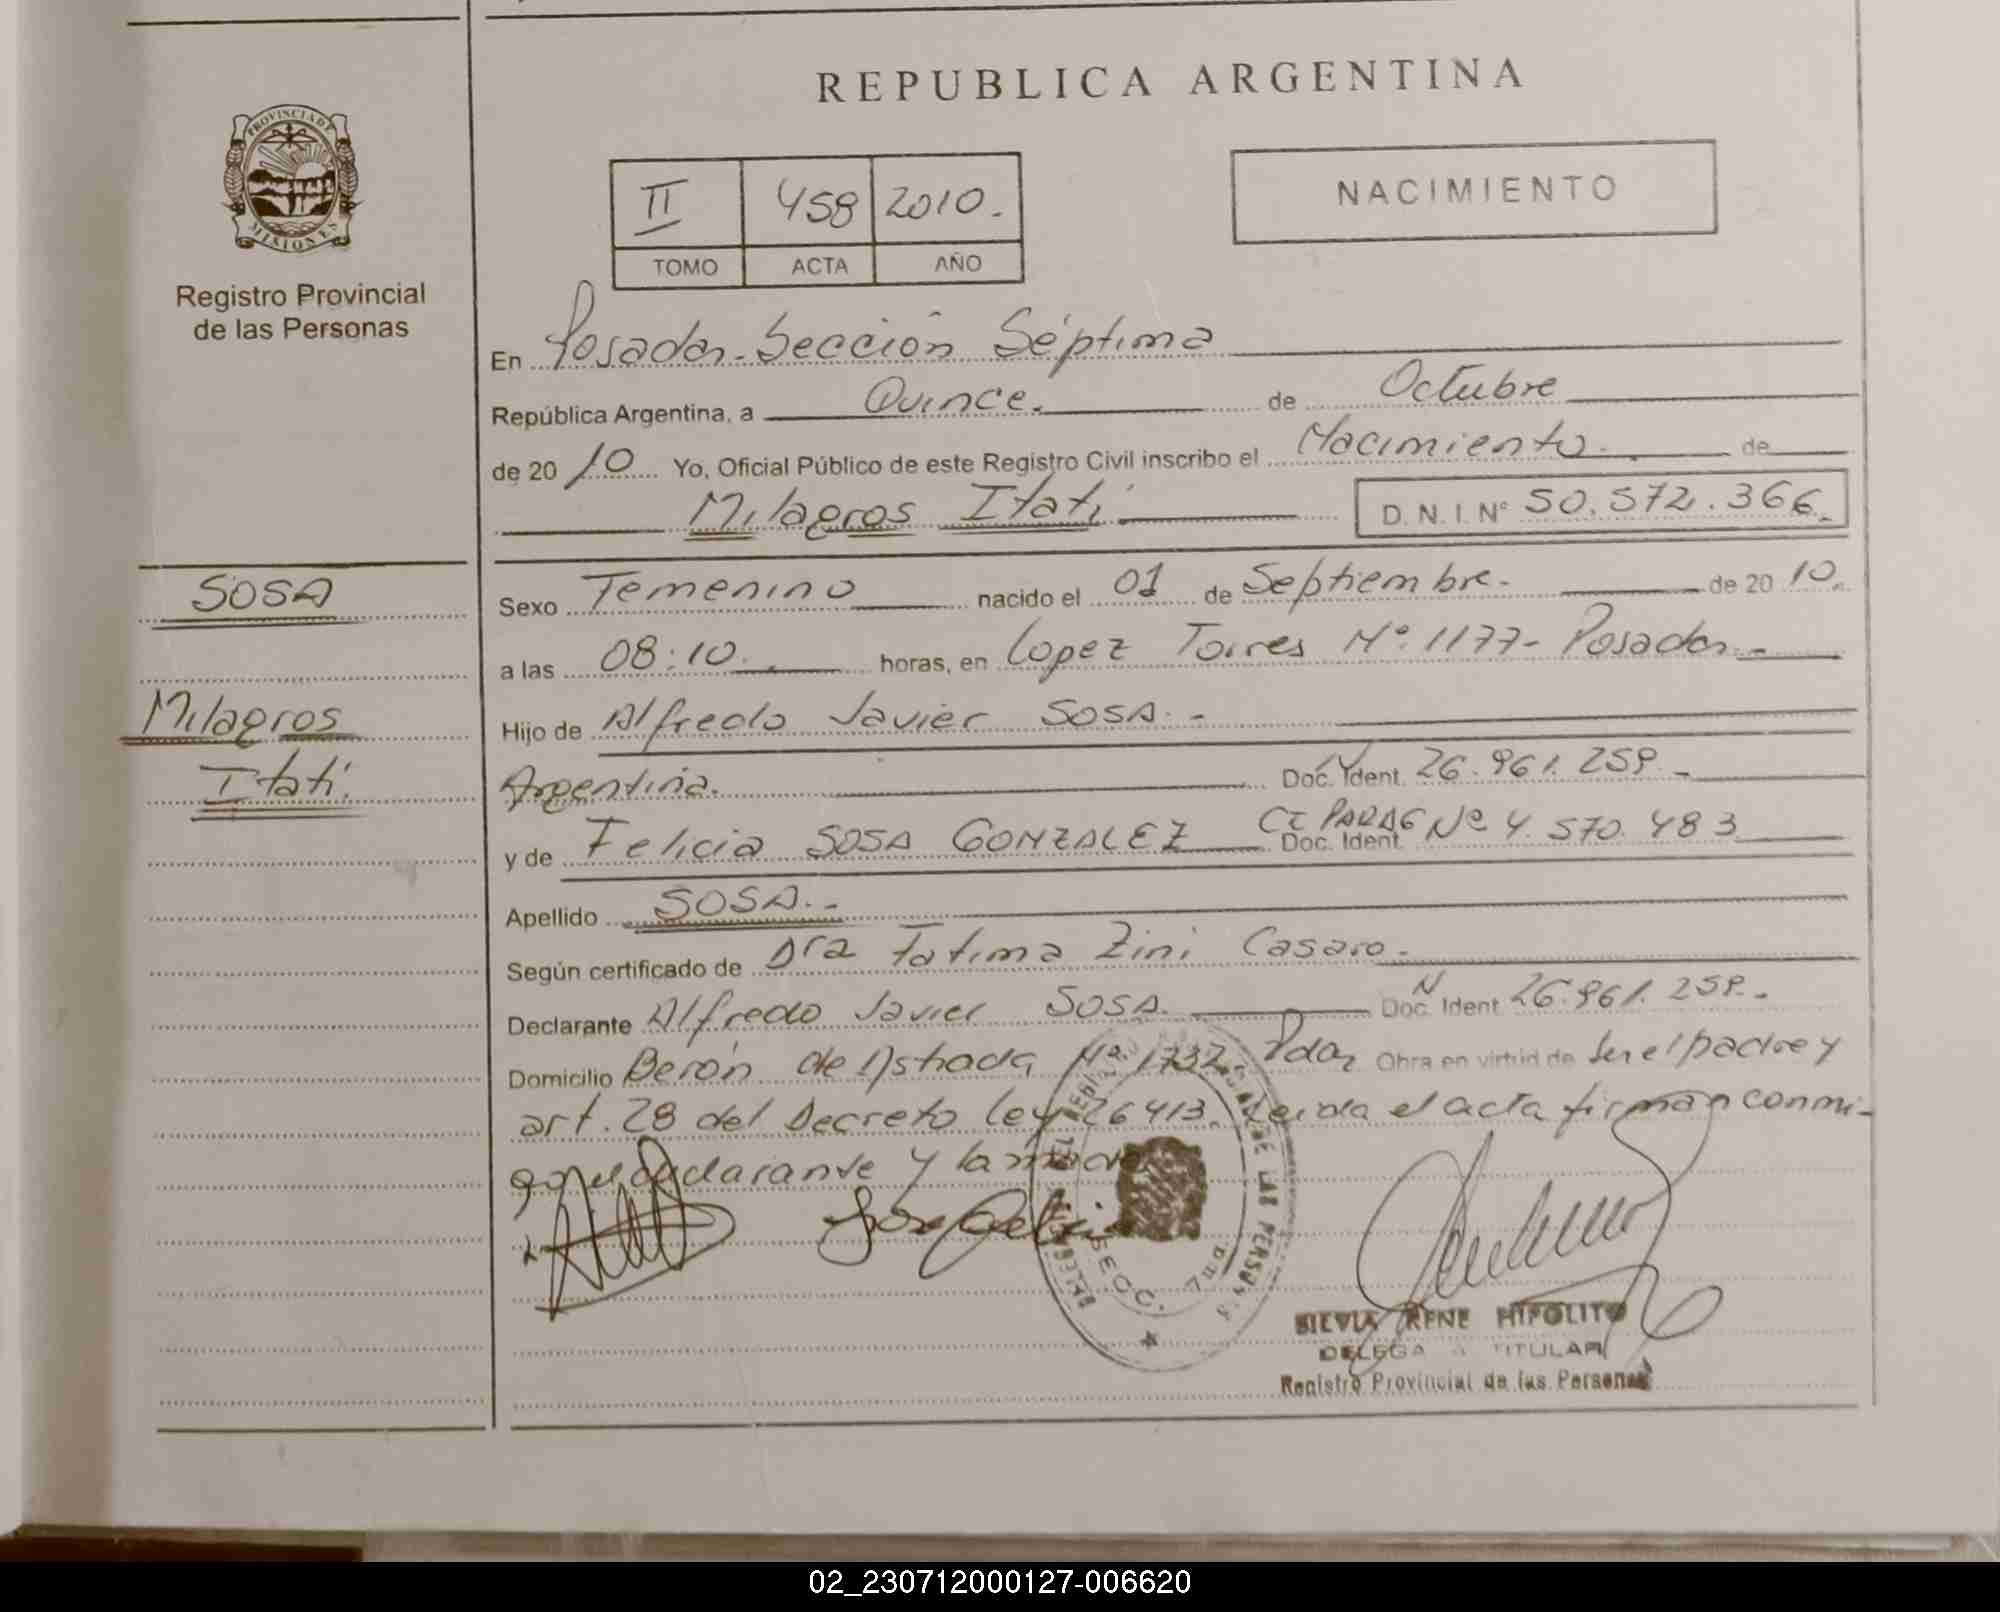 REPUBLICA ARGENTINA
PROVINCIA DE
MISIONES
Registro Provincial
de las Personas
II 458 2010.
TOMO ACTA AÑO
NACIMIENTO
En Posadas - Sección Séptima
República Argentina, a Quince. de Octubre
de 20 10 Yo, Oficial Público de este Registro Civil inscribo el Nacimiento. de
Milagros Itatí D.N.I. Nº 50.572.366.
SOSA
Milagros
Itatí.
Sexo Femenino nacido el 01 de Septiembre. de 20 10.
a las 08:10. horas, en Lopez Torres Nº. 1177- Posadas.-
Hijo de Alfredo Javier SOSA.-
Argentina. Doc. Ident. 26.961.259.-
y de Felicia SOSA GONZALEZ Doc. Ident. CI PARAG Nº 4.570.483
Apellido SOSA.-
Según certificado de Dra Fatima Zini Casaro.-
Declarante Alfredo Javier SOSA. Doc. Ident. N 26.961.259.-
Domicilio Berón de Astrada Nº. 1732. Pdas Obra en virtud de ser el padre y
art. 28 del Decreto Ley 26413. Leida el acta firman conmi-
go el declarante y la madre
SECC. 7ma
DE LAS PERSONAS
SILVIA RENE HIPOLITO
DELEGADA TITULAR
Registro Provincial de las Personas
02_230712000127-006620